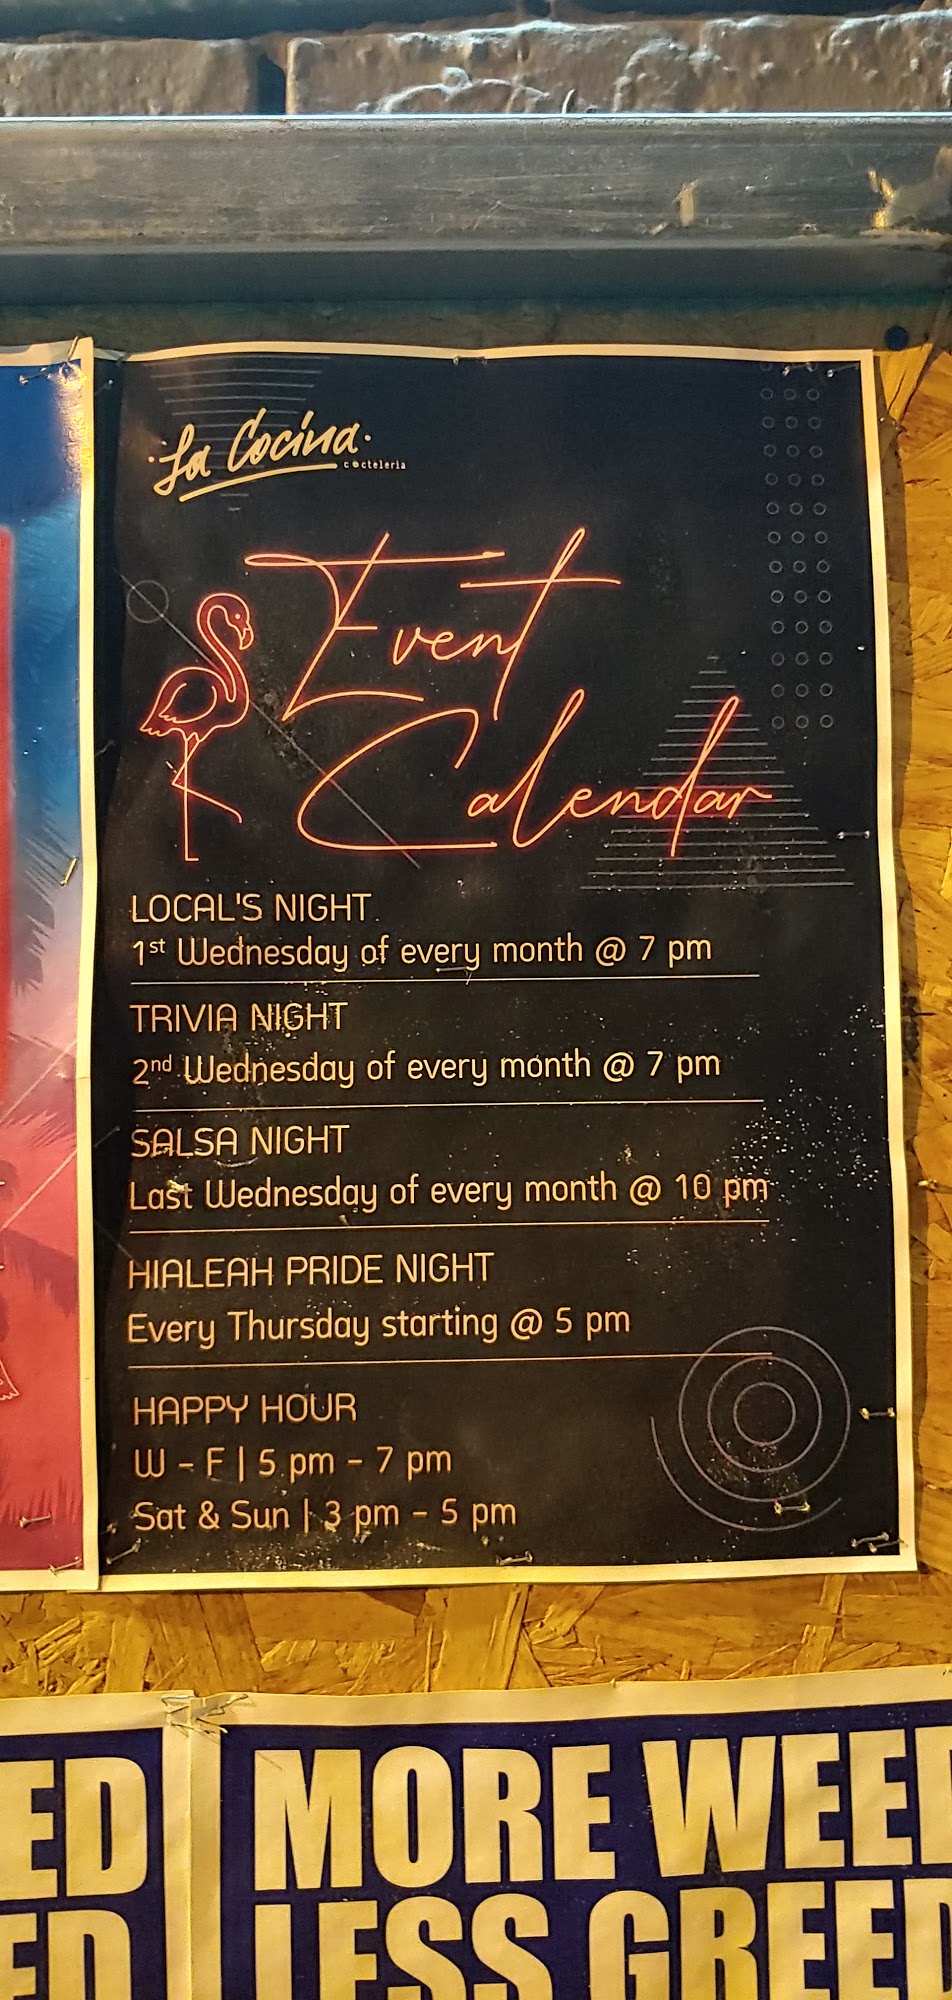 La Cocina
cocteleria
Event
Calendar
LOCAL'S NIGHT
1st Wednesday of every month @ 7 pm
TRIVIA NIGHT
2nd Wednesday of every month @ 7 pm
SALSA NIGHT
Last Wednesday of every month @ 10 pm
HIALEAH PRIDE NIGHT
Every Thursday starting @ 5 pm
HAPPY HOUR
W - F | 5 pm - 7 pm
Sat & Sun | 3 pm - 5 pm
ED
ED
MORE WEED
LESS GREED